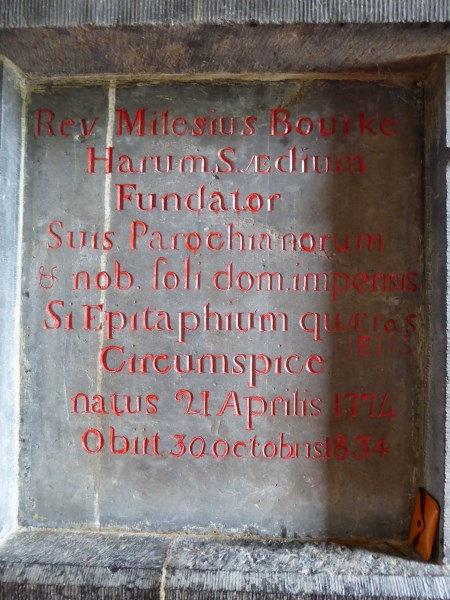 Rev. Milesius Bourke
Harum S. Ædium
Fundator
Suis. Parochianorum
& nob. soli dom. impensis
Si Epitaphium quæras
Circumspice
natus 21 Aprilis 1774
Obiit 30 Octobris 1834